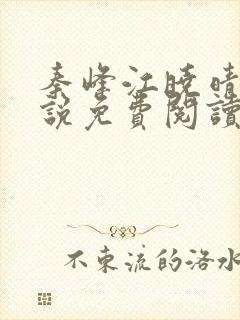 秦峰江曉晴
說免費閱讀
不束流的洛水